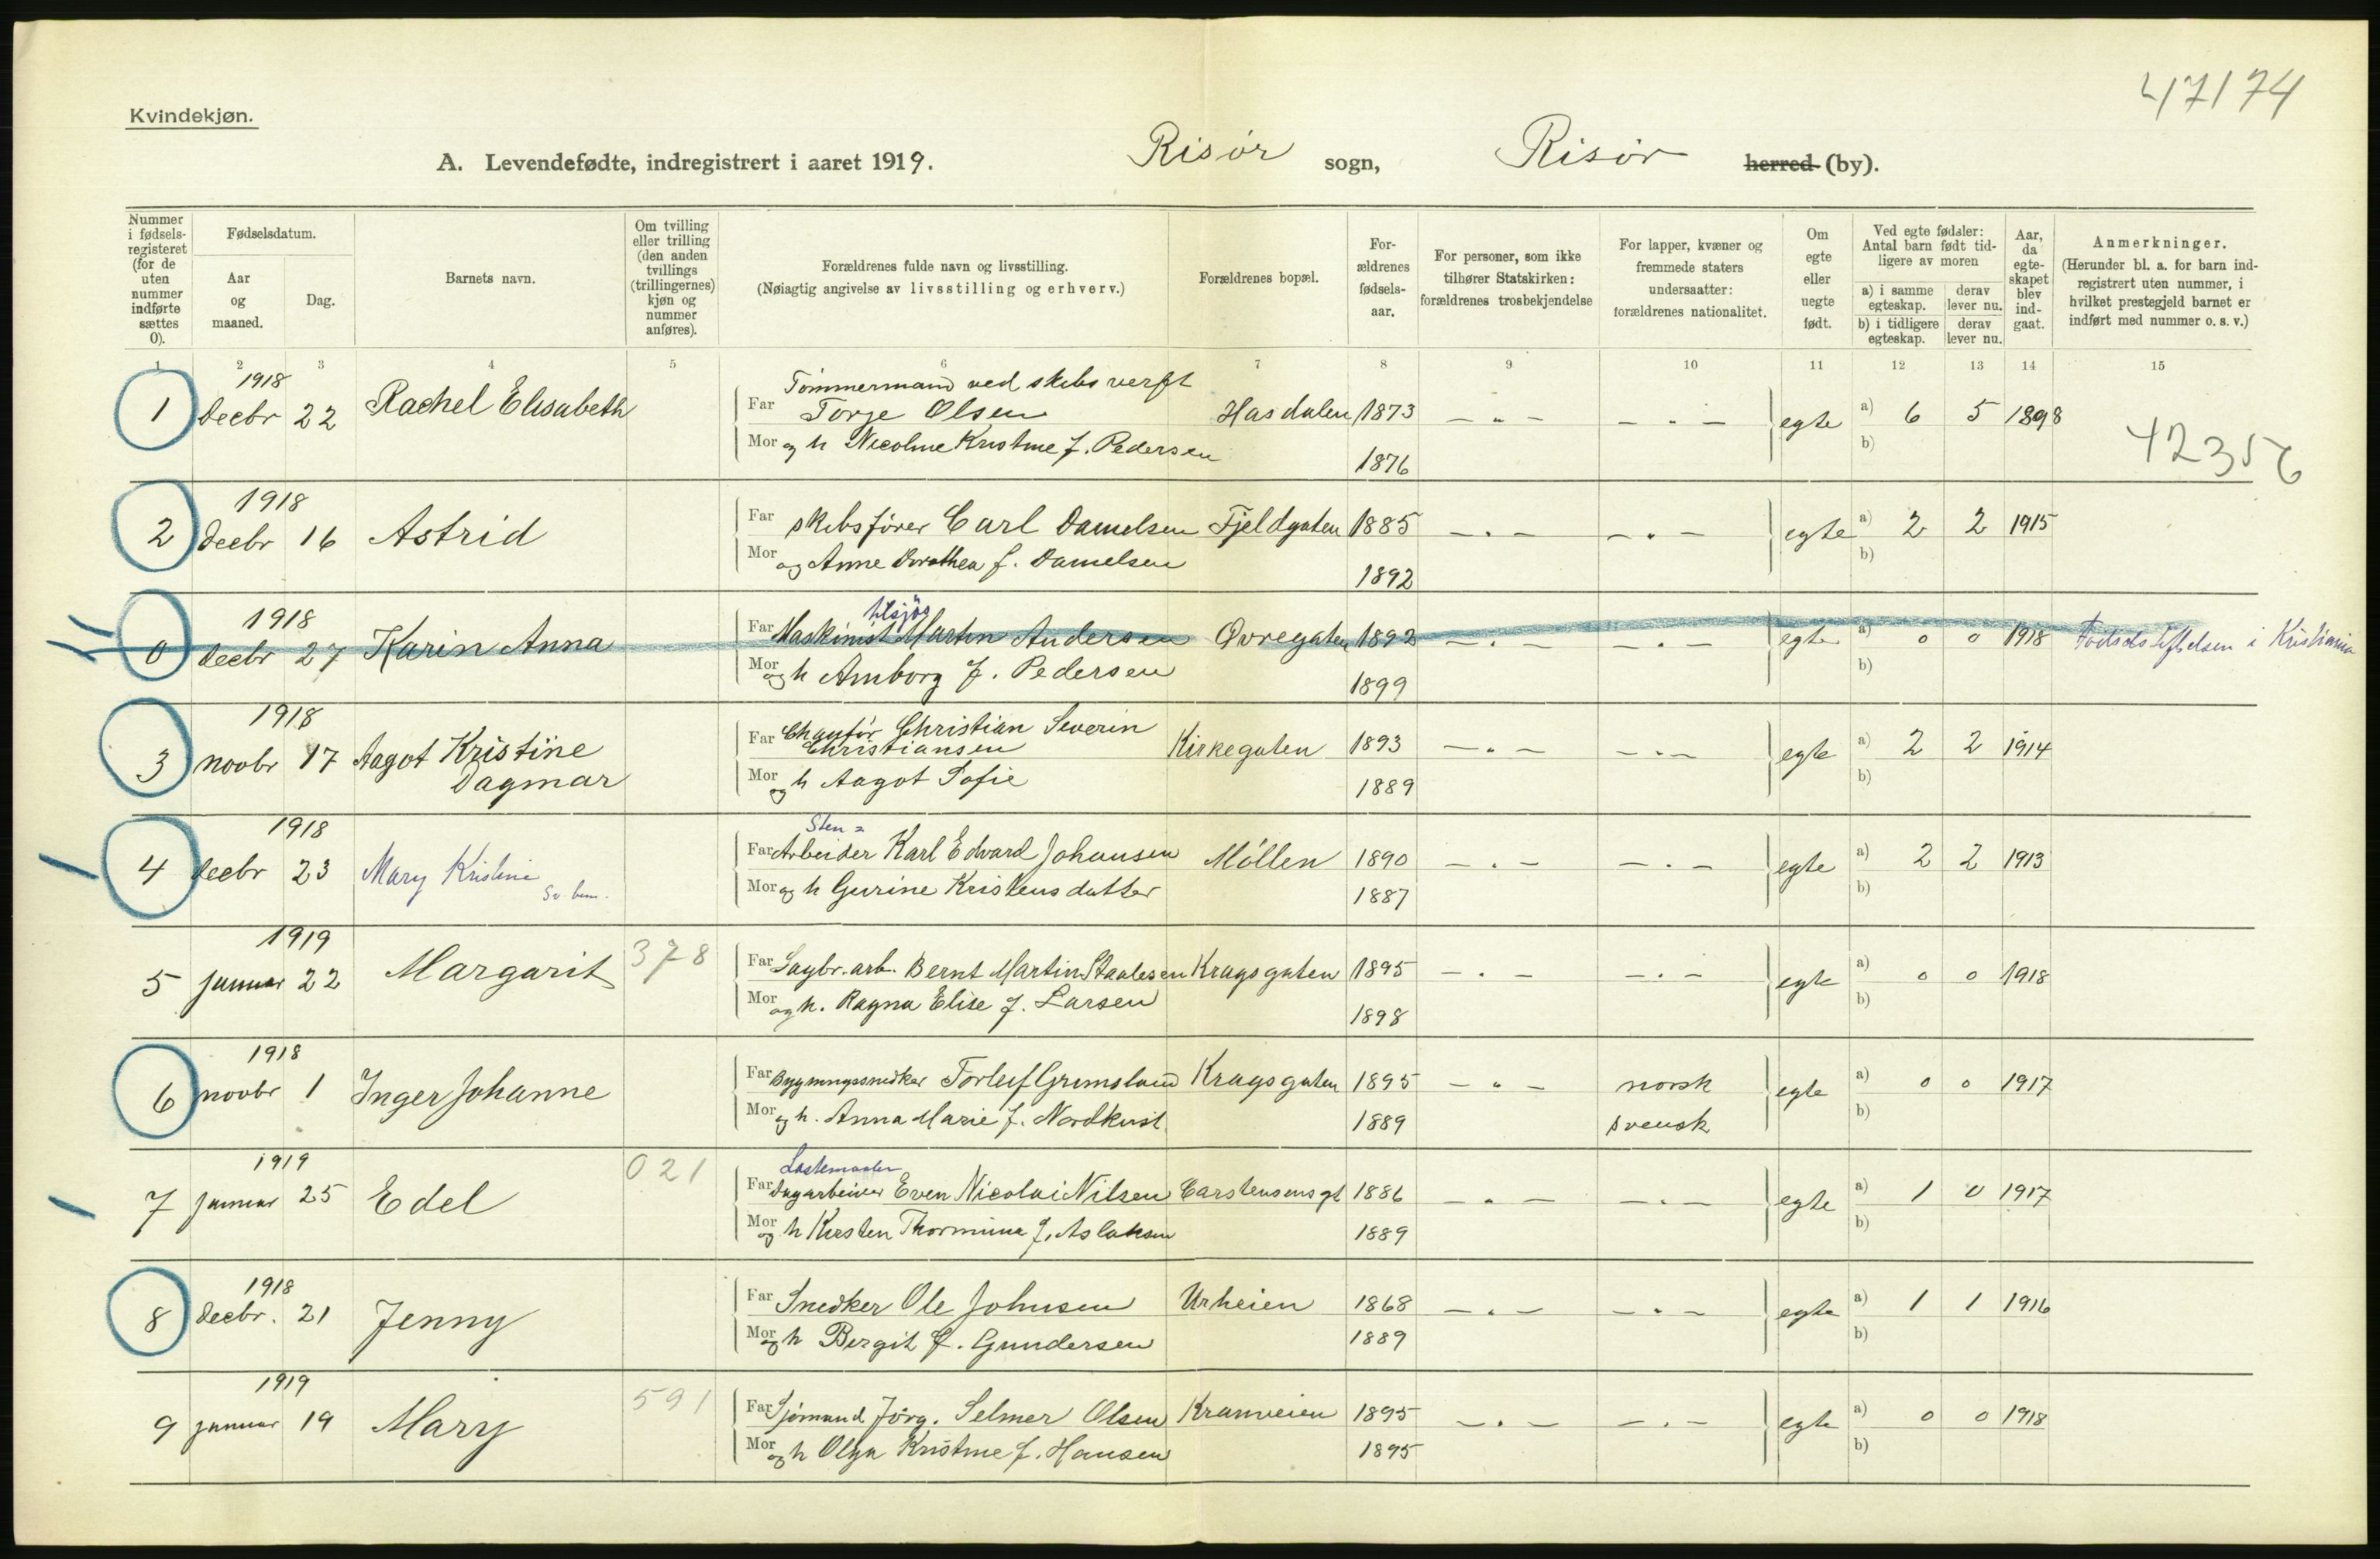 47174
Kvindekjøn.
A. Levendefødte, indregistrert i aaret 1919. Risør sogn, Risør herred (by).
Nummer i fødselsregisteret (for de uten nummer indførte sættes 0).
Fødselsdatum.
Aar og maaned.
Dag.
Barnets navn.
Om tvilling eller trilling (den anden tvillings (trillingernes) kjøn og nummer anføres).
Forældrenes fulde navn og livsstilling.
(Nøiagtig angivelse av livsstilling og erhverv.)
Forældrenes bopæl.
Forældrenes fødselsaar.
For personer, som ikke tilhører Statskirken: forældrenes trosbekjendelse
For lapper, kvæner og fremmede staters undersaatter: forældrenes nationalitet.
Om egte eller uegte født.
Ved egte fødsler: Antal barn født tidligere av moren
a) i samme egteskap. derav lever nu.
b) i tidligere egteskap. derav lever nu.
Aar, da egteskapet blev indgaat.
Anmerkninger.
(Herunder bl. a. for barn indregistrert uten nummer, i hvilket prestegjeld barnet er indført med nummer o. s. v.)
1 2 3 4 5 6 7 8 9 10 11 12 13 14 15
1918 Tømmermand ved skibsverft
1 decbr 22 Rachel Elisabeth Far Torje Olsen Hasdalen 1873 — " — — " — egte a) 6 5 1898
Mor og h Nicoline Kristine f. Pedersen 1876 b)
42356
1918
2 decbr 16 Astrid Far skibsfører Carl Danielsen Fjeldgaten 1885 — " — — " — egte a) 2 2 1915
Mor og Anne Dorothea f. Danielsen 1892 b)
1918 tilsjøs
0 decbr 27 Karin Anna Far Maskinist Martin Andersen Øvregaten 1892 — " — — " — egte a) 0 0 1918 Fødselsstiftelsen i Kristiania
Mor og h Amborg f. Pedersen 1899 b)
1918
3 novbr 17 Aagot Kristine Dagmar Far Chauför Christian Severin Christiansen Kirkegaten 1893 — " — — " — egte a) 2 2 1914
Mor og h Aagot Sofie 1889 b)
1918 Sten =
4 decbr 23 Mary Kristine Far Arbeider Karl Edvard Johansen Møllen 1890 — " — — " — egte a) 2 2 1913
Mor og h Gurine Kristensdatter 1887 b)
1919
5 januar 22 Margarit 378 Far Sagbr. arb. Bernt Martin Staalesen Kragsgaten 1895 — " — — " — egte a) 0 0 1918
Mor og h. Ragna Elise f. Larsen 1898 b)
1918
6 novbr 1 Inger Johanne Far Bygningssnedker Torleif Grimsland Kragsgaten 1895 — " — norsk egte a) 0 0 1917
Mor og h. Anna Marie f. Nordkvist 1889 svensk b)
1919 Lastemaaler
7 januar 25 Edel 021 Far Dagarbeider Even Nicolai Nilsen Carstensensgt 1886 — " — — " — egte a) 1 0 1917
Mor og h Kirsten Thormine f. Aslaksen 1889 b)
1918
8 decbr. 21 Jenny Far Snedker Ole Johnsen Urheien 1868 — " — — " — egte a) 1 1 1916
Mor og h Bergit f. Gundersen 1889 b)
1919
9 januar 19 Mary 591 Far Sjømand Jörg. Selmer Olsen Kranveien 1895 — " — — " — egte a) 0 0 1918
Mor og h Olga Kristine f. Hansen 1895 b)